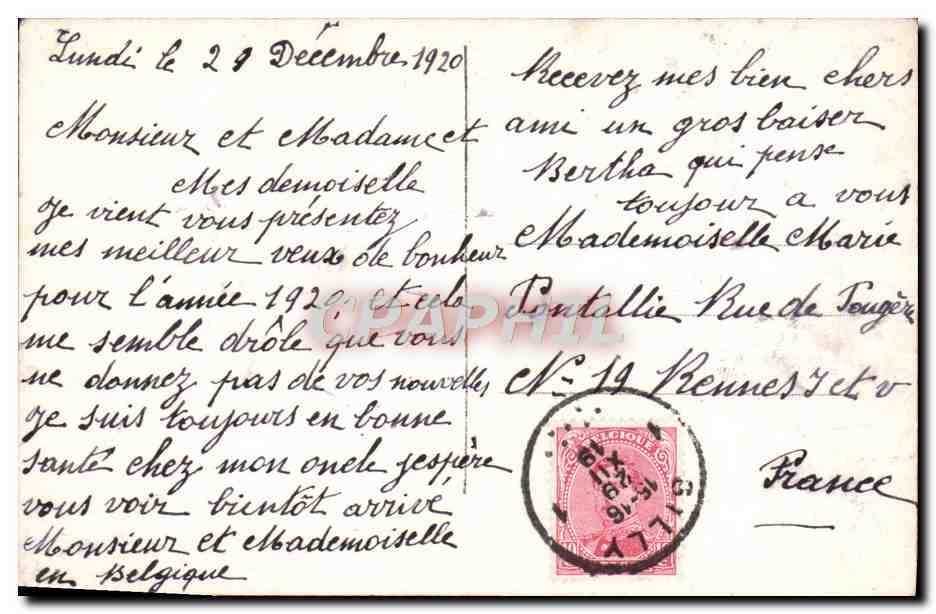 Lundi le 29 Décembre 1920
Monsieur et Madame et
Mes demoiselle
Je vient vous présentez
mes meilleur veux de bonheur
pour l'année 1920, et cela
me semble drôle que vous
ne donnez pas de vos nouvelles
Je suis toujours en bonne
santé chez mon oncle jespère
vous voir bientôt arrivé
Monsieur et Mademoiselle
en Belgique
Recevez mes bien chers
ami un gros baiser
Bertha qui pense
toujour a vous
Mademoiselle Marie
Pontallie Rue de Fougère
No 19 Rennes I et v
France
BELGIQUE
GILLY
15-16
29
XII
19
CPAPHIL